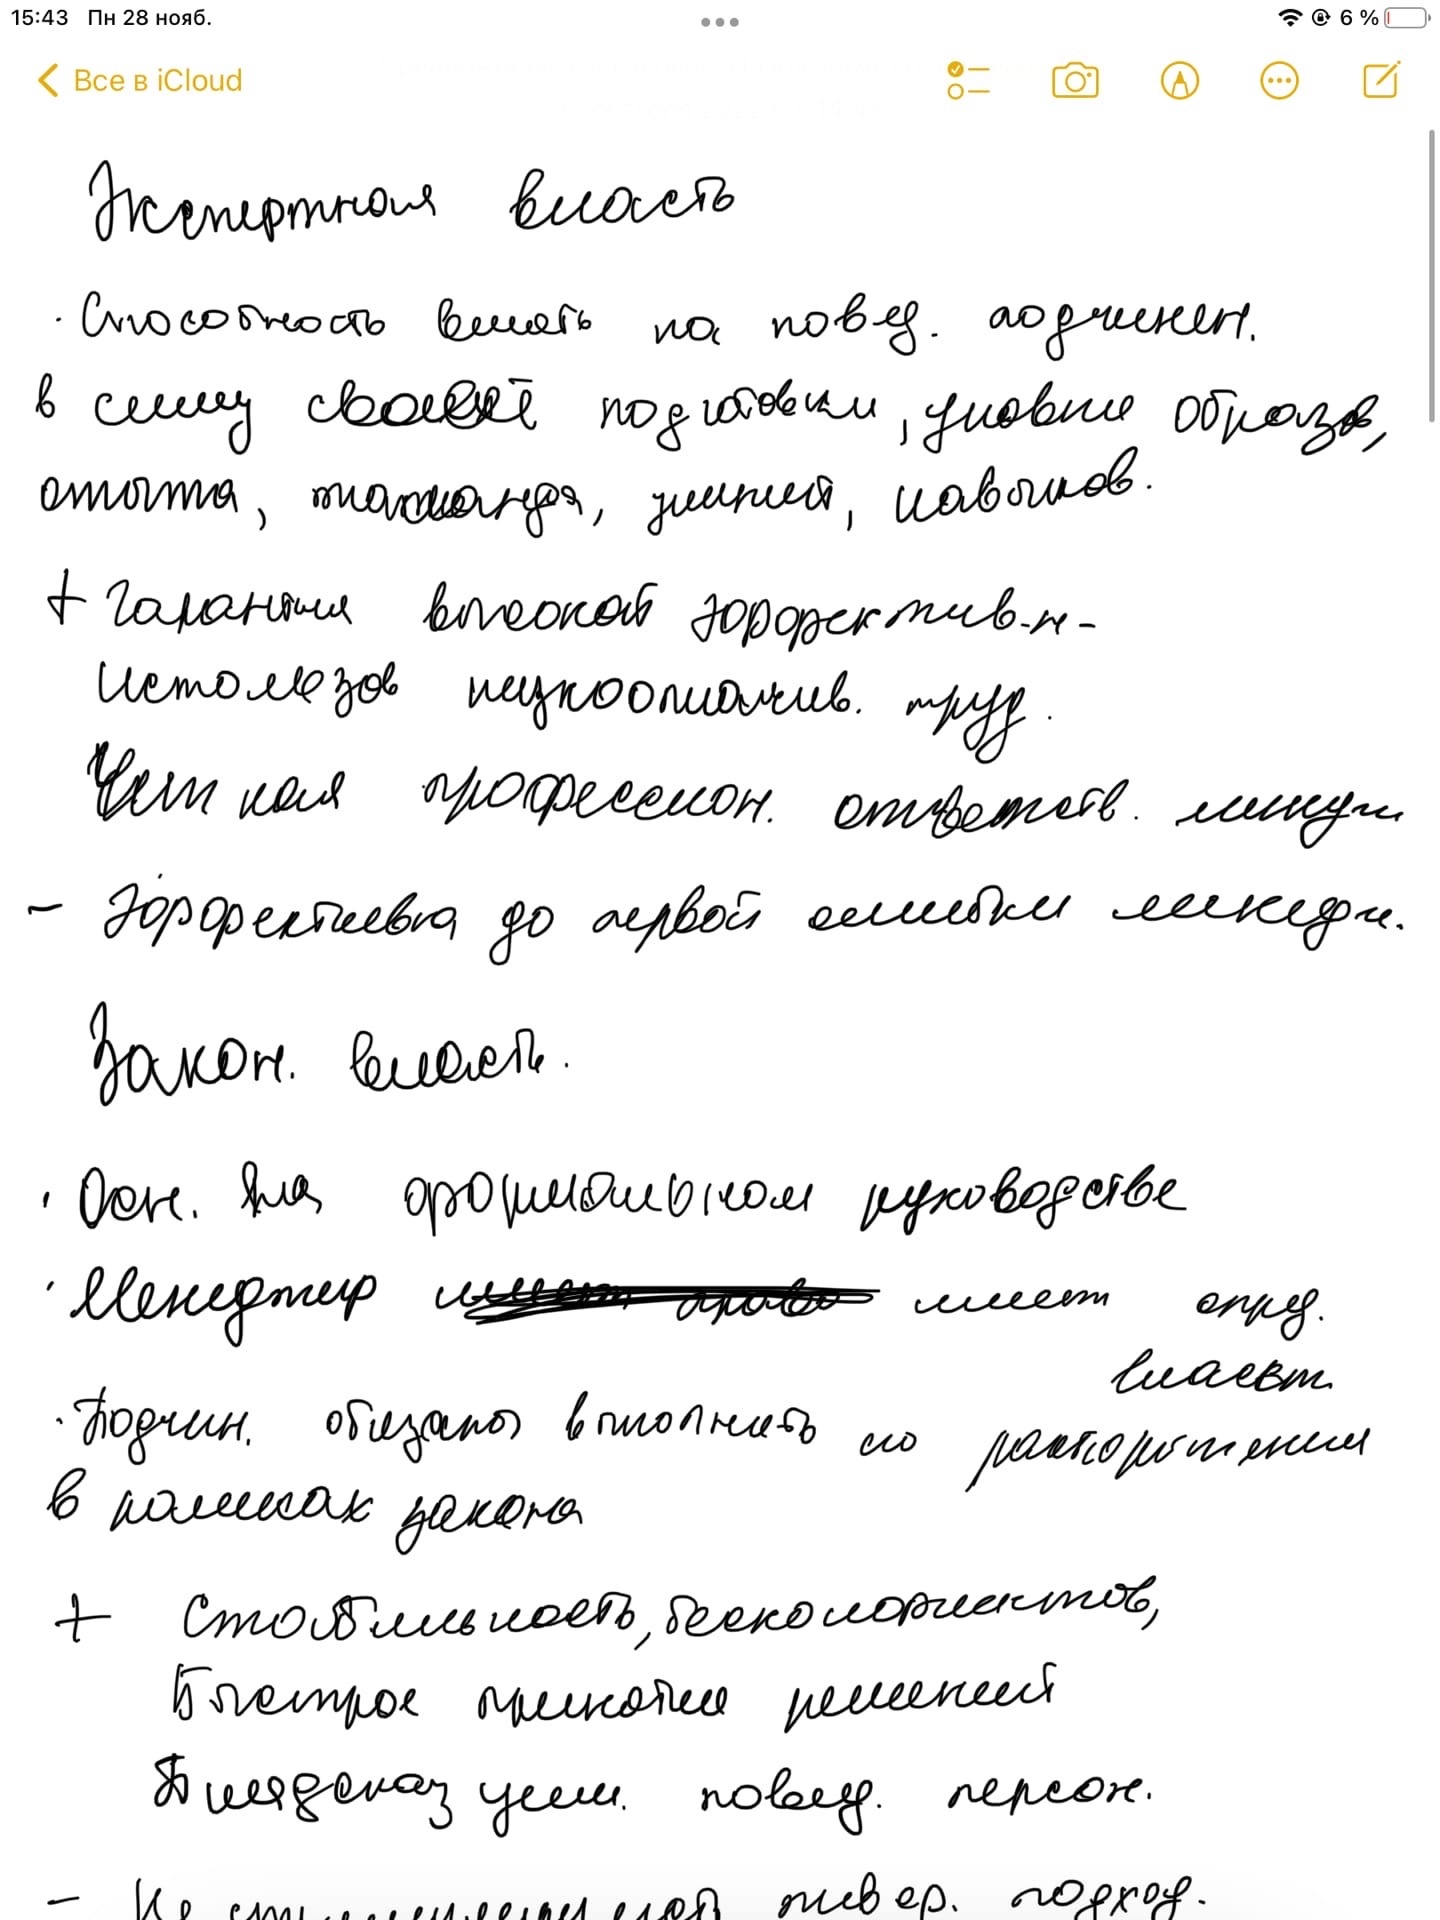 15:43 Пн 28 нояб.
6 %
Все в iCloud
Экспертная власть
· Способность влиять на повед. подчинен.
в силу своей подготовки, уровня образов,
опыта, таланда, умений, навыков.
+ Гарантия высокой эффектив-н-
использов низкооплачив. труд.
Четкая профессион. ответств.
- Эффективна до первой ошибки менедж.
Закон. власть.
· Осн. на формальном руководстве
· Менеджер имеет опред.
власть
· Подчин. обязаны выполнять его распоряжения
в рамках закона
+ Стабильность, бесконфликтов,
Быстрое принятие решений
Предсказуем. повед. персон.
- Не стимулирующий твор. подход.